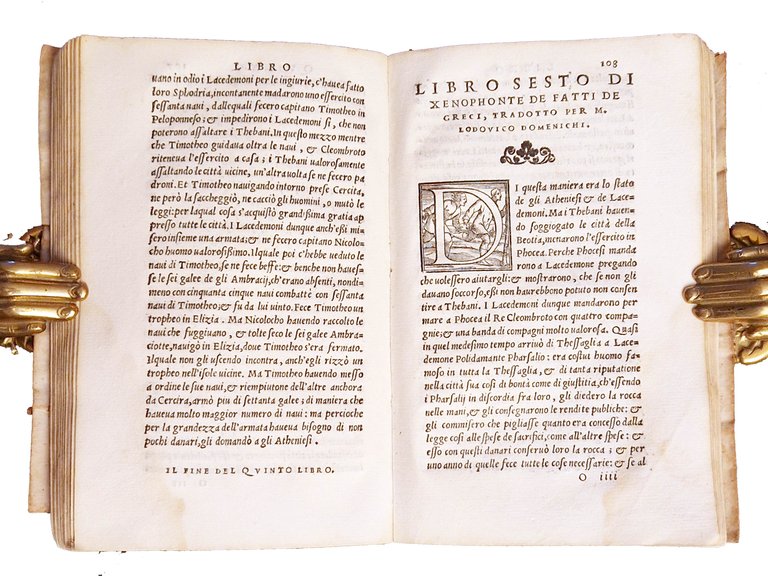 LIBRO
uano in odio i Lacedemoni per le ingiurie, c'hauea fatto
loro Sphodria, incontanente mãdarono uno eßercito con
seßanta naui, dellequali fecero capitano Timotheo in
Peloponneso; & impedirono i Lacedemoni sì, che non
poterono assaltare i Thebani. In questo mezzo mentre
che Timotheo guidaua oltre le naui, & Cleombroto
riteneua l'essercito a casa; i Thebani ualorosamente
assaltando le città uicine, un'altra uolta se ne fecero pa
droni. Et Timotheo nauigando intorno prese Cercira,
ne però la saccheggiò, ne cacciò gli huomini, o mutò le
leggi: per laqual cosa s'acquistò grandißima gratia ap
presso tutte le città. I Lacedemoni dunque anch'eßi mi=
sero insieme una armata; & ne fecero capitano Nicolo=
cho huomo ualorosißimo. Ilquale poi c'hebbe ueduto le
naui di Timotheo, se ne fece beffe: & benche non haues=
se le sei galee de gli Ambracij, ch'erano absenti, nondi=
meno con cinquanta cinque naui combattè con seßanta
naui di Timotheo; & fu da lui uinto. Fece Timotheo un
tropheo in Elizia. Ma Nicolocho hauendo raccolto le
naui che fuggiuano, & tolte seco le sei galee Ambra=
ciotte, nauigò in Elizia, doue Timotheo s'era fermato.
Ilquale non gli uscendo incontra, anch'egli rizzò un
tropheo nell'isole uicine. Ma Timotheo hauendo messo
a ordine le sue naui, & riempiutone dell'altre anchora
da Cercira, armò piu di settanta galee; di maniera che
haueua molto maggior numero di naui: ma percioche
per la grandezza dell'armata haueua bisogno di non
pochi danari, gli domandò a gli Atheniesi.
IL FINE DEL QVINTO LIBRO.
108
LIBRO SESTO DI
XENOPHONTE DE FATTI DE
GRECI, TRADOTTO PER M.
LODOVICO DOMENICHI.
DI questa maniera era lo stato
de gli Atheniesi & de Lace=
demoni. Ma i Thebani hauen=
do soggiogato le città della
Beotia, menarono l'essercito in
Phocea. Perche Phocesi manda
rono a Lacedemone pregando
che uolessero aiutargli: & mostrando, che se non gli
dauano soccorso, eßi non haurebbono potuto non consen
tire a Thebani. I Lacedemoni dunque mandarono per
mare a Phocea il Re Cleombroto con quattro compa=
gnie; & una banda di compagni molto ualorosa. Quasi
in quel medesimo tempo arriuò di Thessaglia a Lace=
demone Polidamante Pharsalio: era costui huomo fa=
moso in tutta la Thessaglia, & di tanta riputatione
nella città sua cosi di bontà come di giustitia, ch'essendo
i Pharsalij in discordia fra loro, gli diedero la rocca
nelle mani, & gli consegnarono le rendite publiche: &
gli commisero che pigliasse quanto era concesso dalla
legge cosi alle spese de sacrifici, come all'altre spese: &
esso con questi danari conseruò loro la rocca; & per
uno anno di quelle fece tutte le cose necessarie: & se al
O iiii